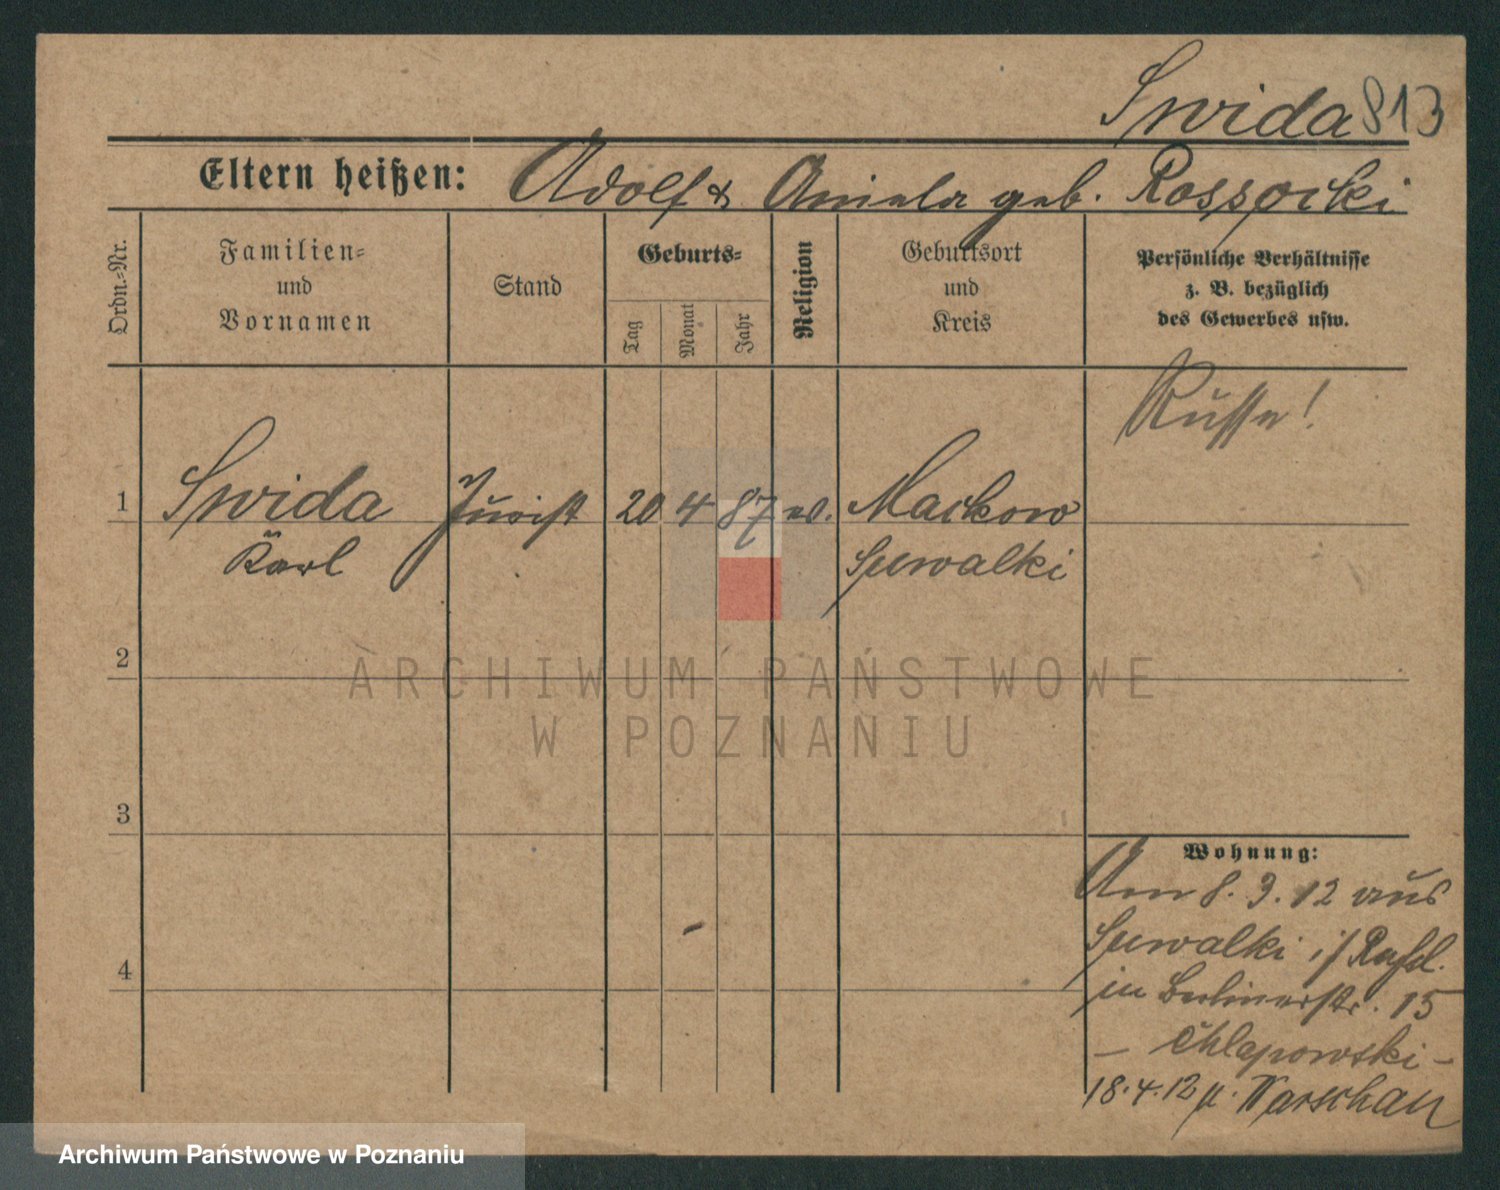 Swida 813
Eltern heißen: Adolf & Aniela geb. Rossocki
Ordn.-Nr.
Familien-
und
Vornamen
Stand
Geburts-
Tag
Monat
Jahr
Religion
Geburtsort
und
Kreis
Persönliche Verhältnisse
z. B. bezüglich
des Gewerbes usw.
Russe!
1 Swida Jurist 20 4 87 Mackow
Karl Suwalki
2
3
4
Wohnung:
Am 8. 3. 12 aus
Suwalki i/Rußl.
in Berlinerstr. 15
– Chlapowski –
18.4.12 n. Warschau
ARCHIWUM PAŃSTWOWE
W POZNANIU
Archiwum Państwowe w Poznaniu